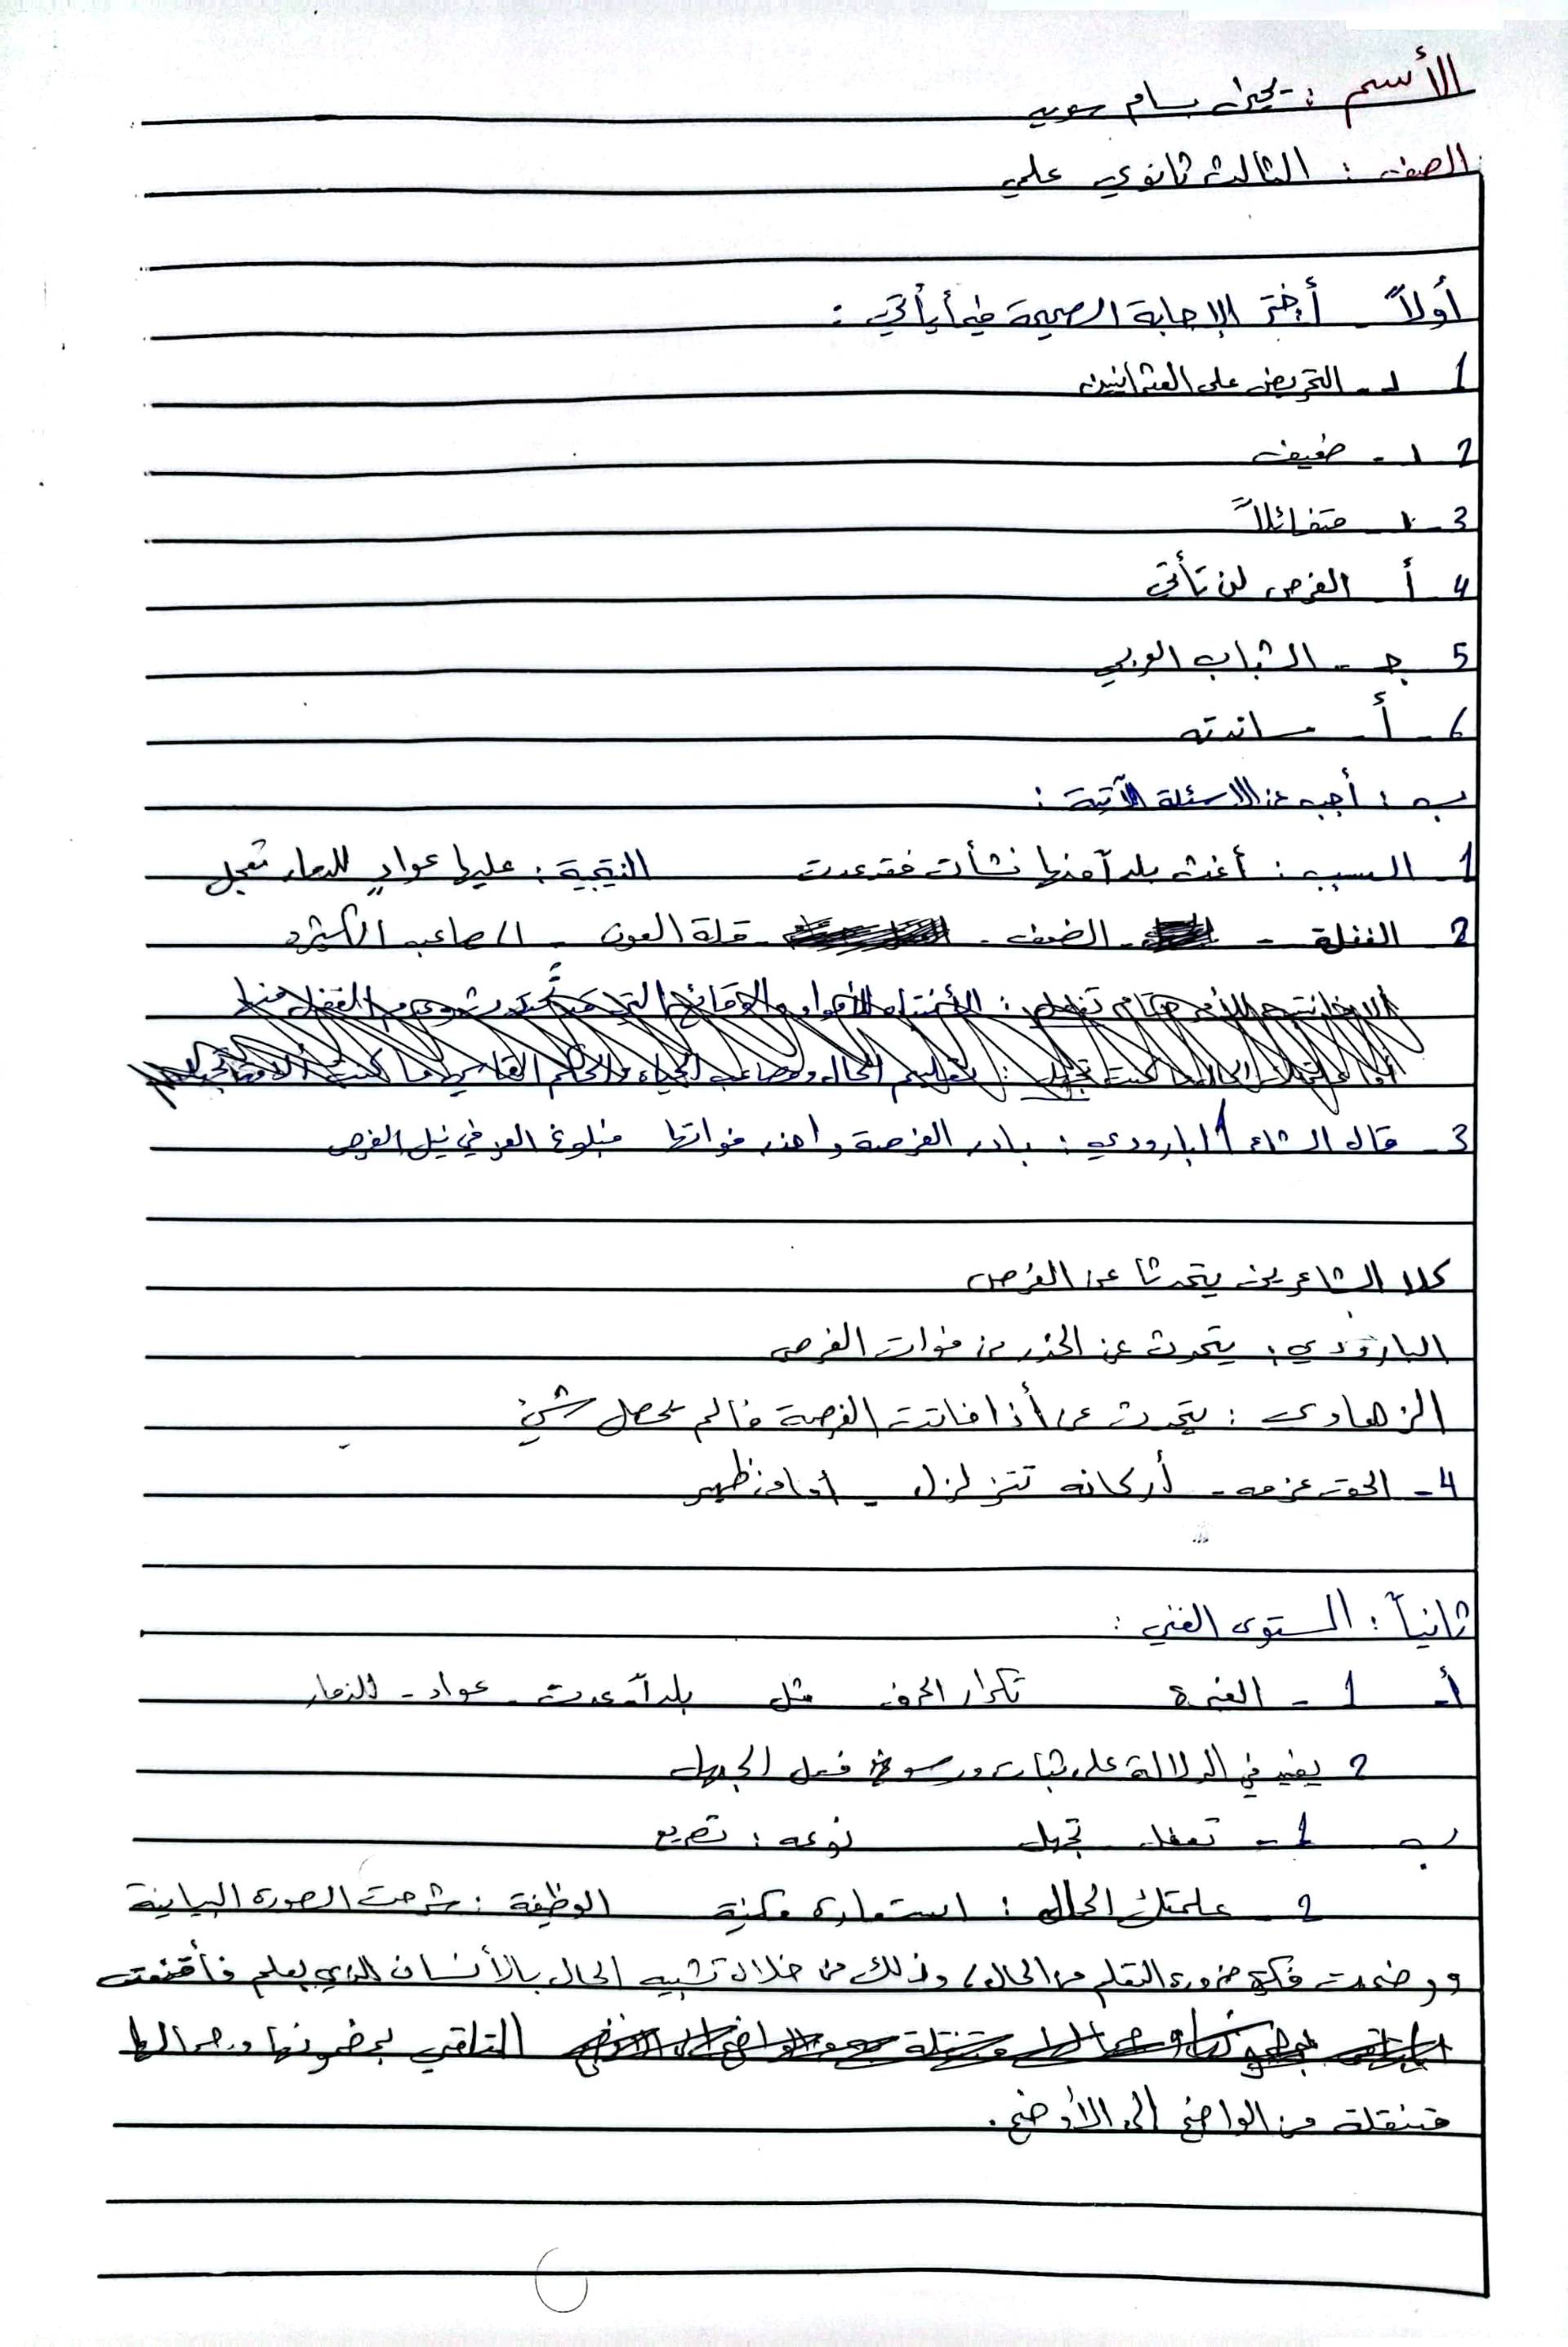 الأسم : يحيى بسام سويد
الصف : الثالث ثانوي علمي
أولاً - أختر الإجابة الصحيحة فيما يأتي :
1 د - التحريض على العثمانيين
2 د - ضعيف
3 - د - متفائلاً
4 - أ - الفرص لن تأتي
5 ج - الشباب العربي
6 - أ - ساندته
ب : أجب عن الاسئلة الآتية :
1 - السبب : أغث بلداً منها نشأت فقد عدت النتيجة : عليها عوادٍ للدمار تعجل
2 - الغفلة - الضعف - قلة العون - المصاعب الكثيرة
3 - قال الشاعر البارودي : بادر الفرصة واحذر فواتها فبلوغ العز في نيل الفرص
كلا الشاعرين يتحدثا عن الفرص
البارودي : يتحدث عن الحذر من فوات الفرص
الزهاوي : يتحدث عن أذا فاتت الفرصة فالم يحصل شيئ
4 - الحق عزمه - أركانه تتزلزل -
ثانياً : المستوى الفني :
أ - 1 - الغيرة تكرار الحرف مثل بلداً - عدت - عواد - للدمار
2 يفيد في الدلالة على ثبات ورسوخ فعل الجهل
ب 1 - تعقل - تجهل نوعه : تصريع
2 - علمتك الحال : استعارة مكنية الوظيفة : شرحت الصورة البيانية
ووضحت فكرة ضرورة التعلم من الحال ، وذلك من خلال تشبيه الحال بالأنسان الذي يعلم فأقنعت
المتلقي بمضمونها وجمالها
متنقلة من الواضح إلى الأوضح .